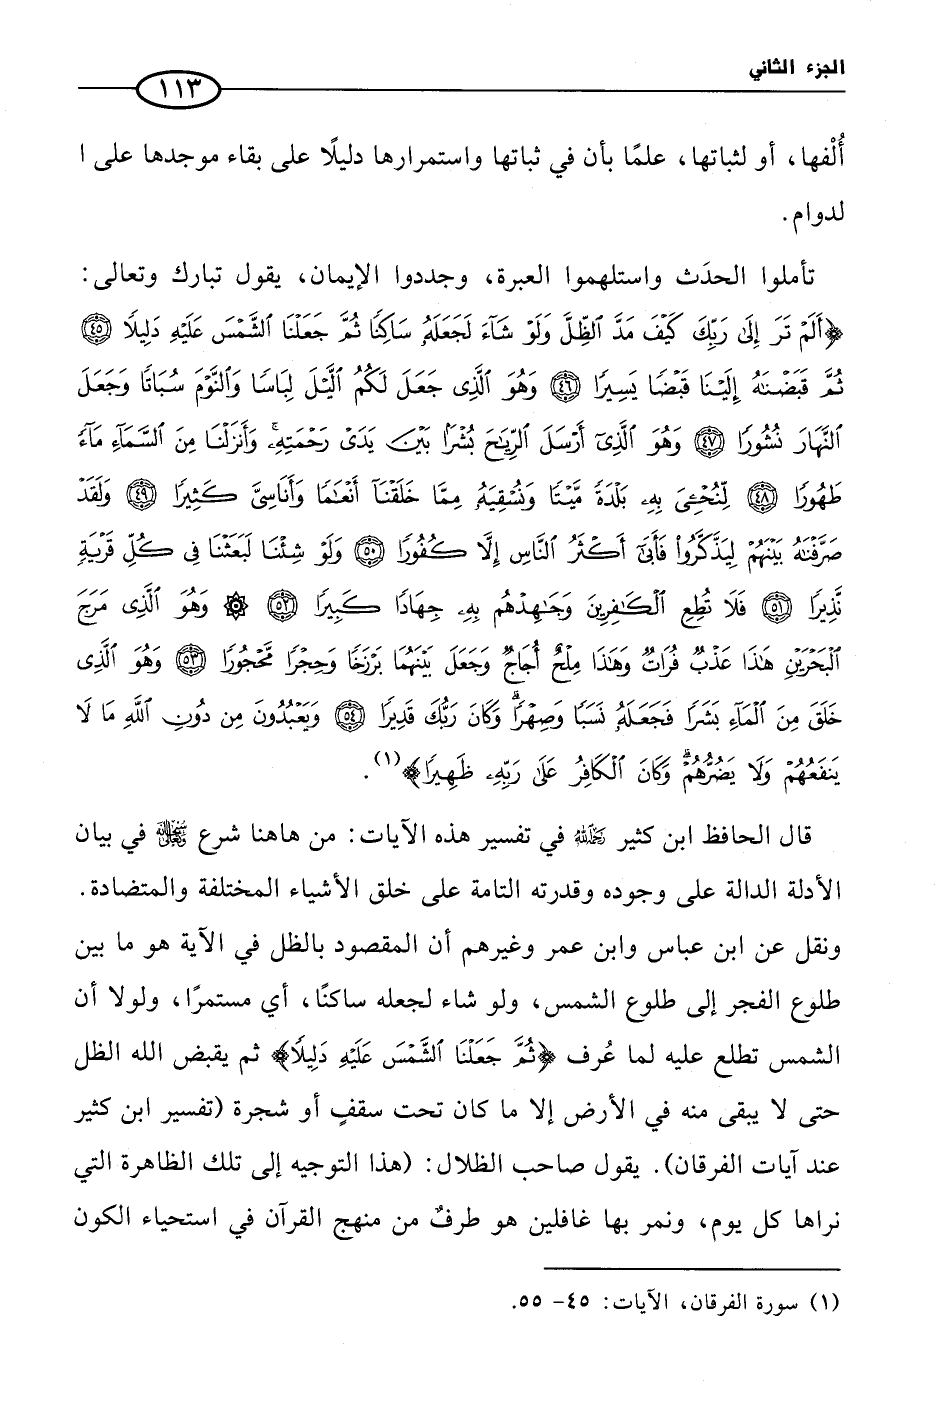 الجزء الثاني
١١٣
أُلْفها، أو لثباتها، علمًا بأن في ثباتها واستمرارها دليلًا على بقاء موجدها على ا
لدوام.
تأملوا الحدَث واستلهموا العبرة، وجددوا الإيمان، يقول تبارك وتعالى:
﴿أَلَمْ تَرَ إِلَىٰ رَبِّكَ كَيْفَ مَدَّ ٱلظِّلَّ وَلَوْ شَآءَ لَجَعَلَهُۥ سَاكِنًا ثُمَّ جَعَلْنَا ٱلشَّمْسَ عَلَيْهِ دَلِيلًا ٤٥
ثُمَّ قَبَضْنَٰهُ إِلَيْنَا قَبْضًا يَسِيرًا ٤٦ وَهُوَ ٱلَّذِى جَعَلَ لَكُمُ ٱلَّيْلَ لِبَاسًا وَٱلنَّوْمَ سُبَاتًا وَجَعَلَ
ٱلنَّهَارَ نُشُورًا ٤٧ وَهُوَ ٱلَّذِىٓ أَرْسَلَ ٱلرِّيَٰحَ بُشْرًۢا بَيْنَ يَدَىْ رَحْمَتِهِۦ ۚ وَأَنزَلْنَا مِنَ ٱلسَّمَآءِ مَآءً
طَهُورًا ٤٨ لِّنُحْـِۧىَ بِهِۦ بَلْدَةً مَّيْتًا وَنُسْقِيَهُۥ مِمَّا خَلَقْنَآ أَنْعَٰمًا وَأَنَاسِىَّ كَثِيرًا ٤٩ وَلَقَدْ
صَرَّفْنَٰهُ بَيْنَهُمْ لِيَذَّكَّرُوا۟ فَأَبَىٰٓ أَكْثَرُ ٱلنَّاسِ إِلَّا كُفُورًا ٥٠ وَلَوْ شِئْنَا لَبَعَثْنَا فِى كُلِّ قَرْيَةٍ
نَّذِيرًا ٥١ فَلَا تُطِعِ ٱلْكَٰفِرِينَ وَجَٰهِدْهُم بِهِۦ جِهَادًا كَبِيرًا ٥٢ ۞ وَهُوَ ٱلَّذِى مَرَجَ
ٱلْبَحْرَيْنِ هَٰذَا عَذْبٌ فُرَاتٌ وَهَٰذَا مِلْحٌ أُجَاجٌ وَجَعَلَ بَيْنَهُمَا بَرْزَخًا وَحِجْرًا مَّحْجُورًا ٥٣ وَهُوَ ٱلَّذِى
خَلَقَ مِنَ ٱلْمَآءِ بَشَرًا فَجَعَلَهُۥ نَسَبًا وَصِهْرًا ۗ وَكَانَ رَبُّكَ قَدِيرًا ٥٤ وَيَعْبُدُونَ مِن دُونِ ٱللَّهِ مَا لَا
يَنفَعُهُمْ وَلَا يَضُرُّهُمْ ۗ وَكَانَ ٱلْكَافِرُ عَلَىٰ رَبِّهِۦ ظَهِيرًا﴾(١).
قال الحافظ ابن كثير رحمه الله في تفسير هذه الآيات: من هاهنا شرع سبحانه وتعالى في بيان
الأدلة الدالة على وجوده وقدرته التامة على خلق الأشياء المختلفة والمتضادة.
ونقل عن ابن عباس وابن عمر وغيرهم أن المقصود بالظل في الآية هو ما بين
طلوع الفجر إلى طلوع الشمس، ولو شاء لجعله ساكنًا، أي مستمرًا، ولولا أن
الشمس تطلع عليه لما عُرف ﴿ثُمَّ جَعَلْنَا ٱلشَّمْسَ عَلَيْهِ دَلِيلًا﴾ ثم يقبض الله الظل
حتى لا يبقى منه في الأرض إلا ما كان تحت سقفٍ أو شجرة (تفسير ابن كثير
عند آيات الفرقان). يقول صاحب الظلال: (هذا التوجيه إلى تلك الظاهرة التي
نراها كل يوم، ونمر بها غافلين هو طرفٌ من منهج القرآن في استحياء الكون
(١) سورة الفرقان، الآيات: ٤٥- ٥٥.